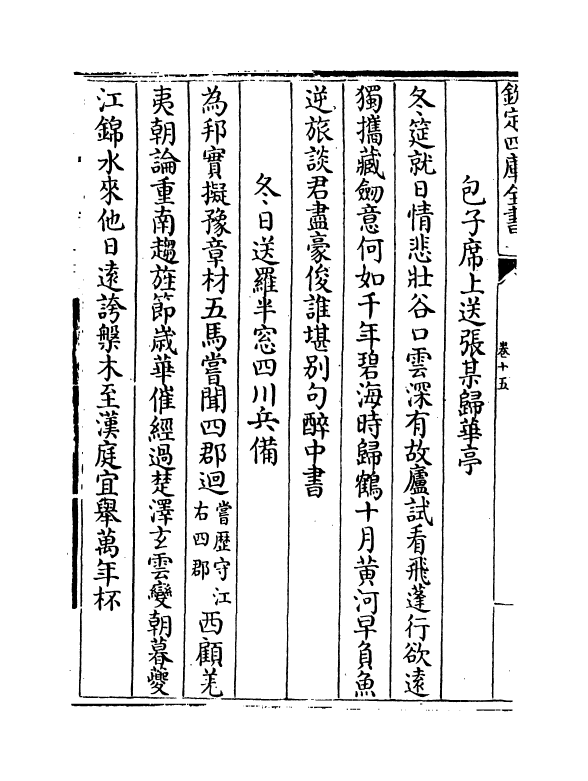 欽定四庫全書
卷十五
包子席上送張某歸華亭
冬筵就日情悲壯谷口雲深有故廬試看飛蓬行欲遠
獨攜藏劒意何如千年碧海時歸鶴十月黄河早負魚
逆旅談君盡豪俊誰堪别句醉中書
冬日送羅半窓四川兵備
為邦實擬豫章材五馬嘗聞四郡迴嘗歴守江右四郡西顧羌
夷朝論重南趨旌節歲華催經過楚澤玄雲變朝暮夔
江錦水來他日逺誇槃木至漢庭宜舉萬年杯